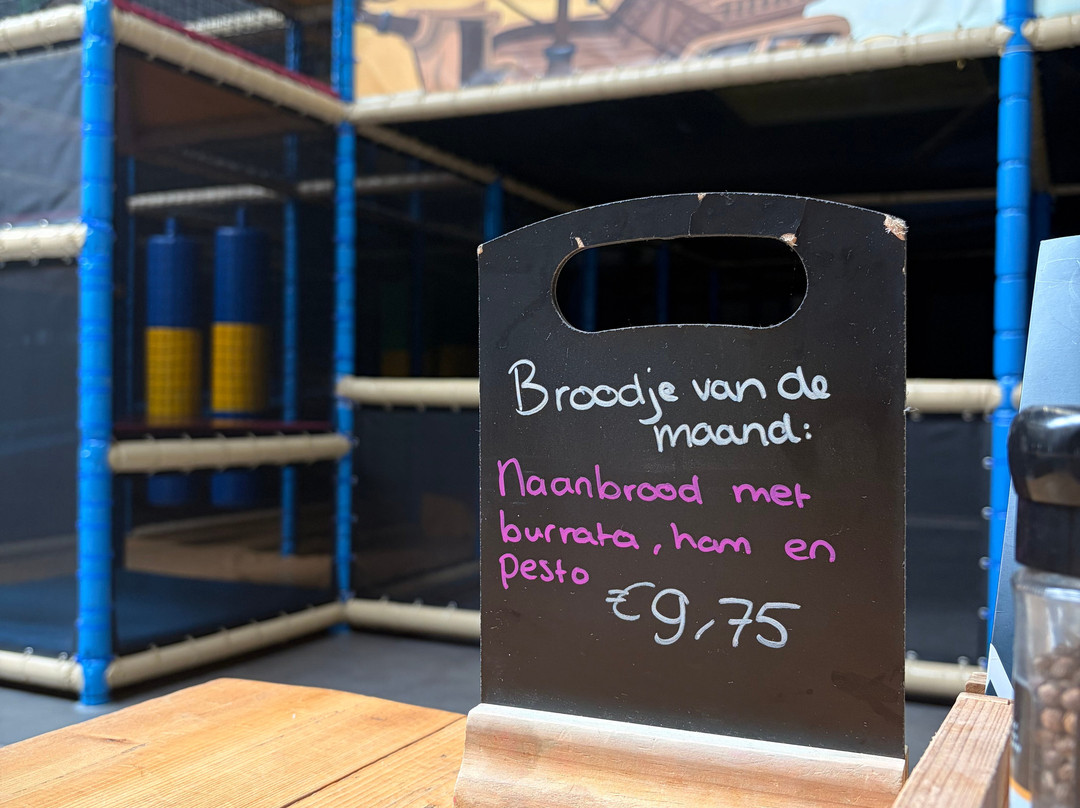 Broodje van de
maand:
Naanbrood met
burrata, ham en
pesto
€9,75